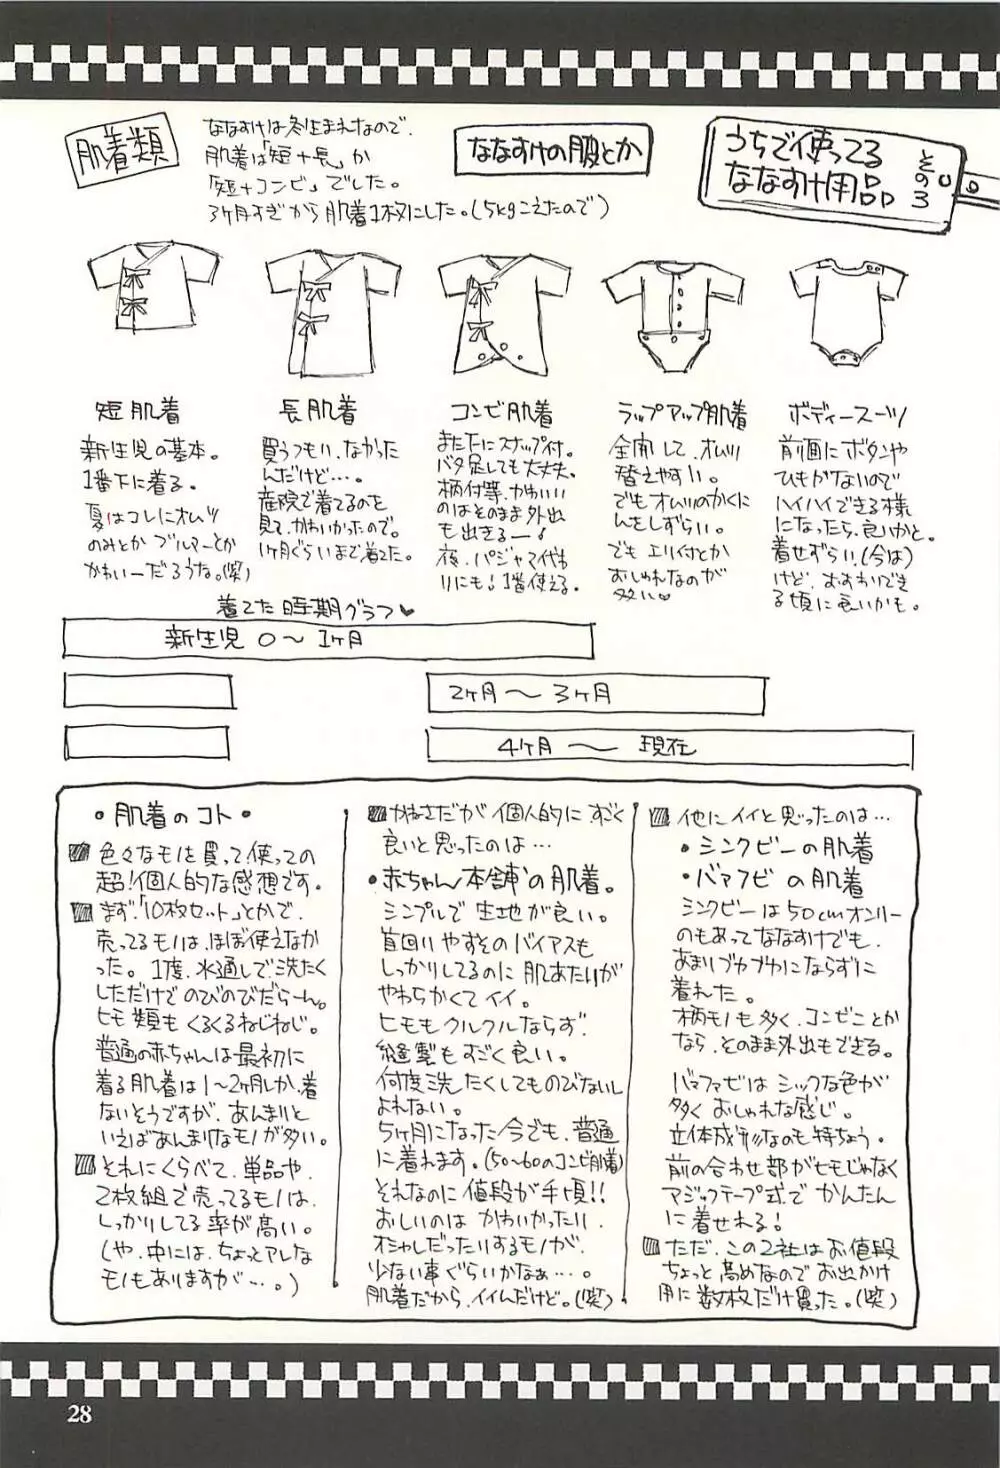 うちで使ってる
ななすけ用品
その3
ななすけの服とか
肌着類
ななすけは冬生まれなので、
肌着は「短+長」か
「短+コンビ」でした。
3ヶ月すぎから肌着1枚にした。(5kgこえたので)
短肌着
新生児の基本。
1番下に着る。
夏はコレにオムツ
のみとか ブルマーとか
かわいーだろうな。(笑)
長肌着
買うつもりなかった
んだけど…。
産院で着てるのを
見て、かわいかったので。
1ヶ月ぐらいまで着てた。
コンビ肌着
また下にスナップ付。
バタ足しても大丈夫。
柄付等、かわいい
のはそのまま外出
も出きるー!
夜、パジャマ代わ
りにも!1番使える。
ラップアップ肌着
全開して、オムツ
替えやすい。
でもオムツのかくに
んをしずらい。
でも エリ付とか
おしゃれなのが
多い♥
ボディースーツ
前面にボタンや
ひもがないので
ハイハイできる様
になったら、良いかと。
着せずらい、(今は)
けど、おすわりでき
る頃に良いかも。
着てた時期グラフ♥
新生児 0〜1ヶ月
2ヶ月〜3ヶ月
4ヶ月〜 現在
・肌着のコト・
色々なモノを買って使っての
超!個人的な感想です。
まず、「10枚セット」とかで、
売ってるモノは、ほぼ使えなか
った。1度、水通しで洗たく
しただけでのびのびだらーん。
ヒモ類もくるくるねじねじ。
普通の赤ちゃんは最初に
着る肌着は1〜2ヶ月しか着
ないそうですが、あんまりと
いえばあんまりなモノが多い。
それにくらべて、単品や、
2枚組で売ってるモノは、
しっかりしてる率が高い。
(や、中には、ちょっとアレな
モノもありますが…。)
かねさだが個人的に、すごく
良いと思ったのは…
・赤ちゃん本舗の肌着。
シンプルで生地が良い。
首回りやすそのバイアスも
しっかりしてるのに肌あたりが
やわらかくてイイ。
ヒモもクルクルならず、
縫製もすごく良い。
何度洗たくしてものびないし
よれない。
5ヶ月になった今でも、普通
に着れます。(50〜60のコンビ肌着)
それなのに値段が手頃!!
おしいのは かわいかったり、
オシャレだったりするモノが、
少ない事ぐらいかなぁ…。
肌着だから、イイんだけど。(笑)
他にイイと思ったのは…
・シンクビーの肌着
・バァフビの肌着
シンクビーは50cmオンリー
のもあってななすけでも、
あまりブカブカにならずに
着れた。
柄モノも多く、コンビことか
なら、そのまま外出もできる。
バァファビは シックな色が
多く おしゃれな感じ。
立体成形なのも特ちょう。
前の合わせ部がヒモじゃなく
マジックテープ式で かんたん
に着せれる!
ただ、この2社はお値段
ちょっと高めなのでお出かけ
用に数枚だけ買った。(笑)
28